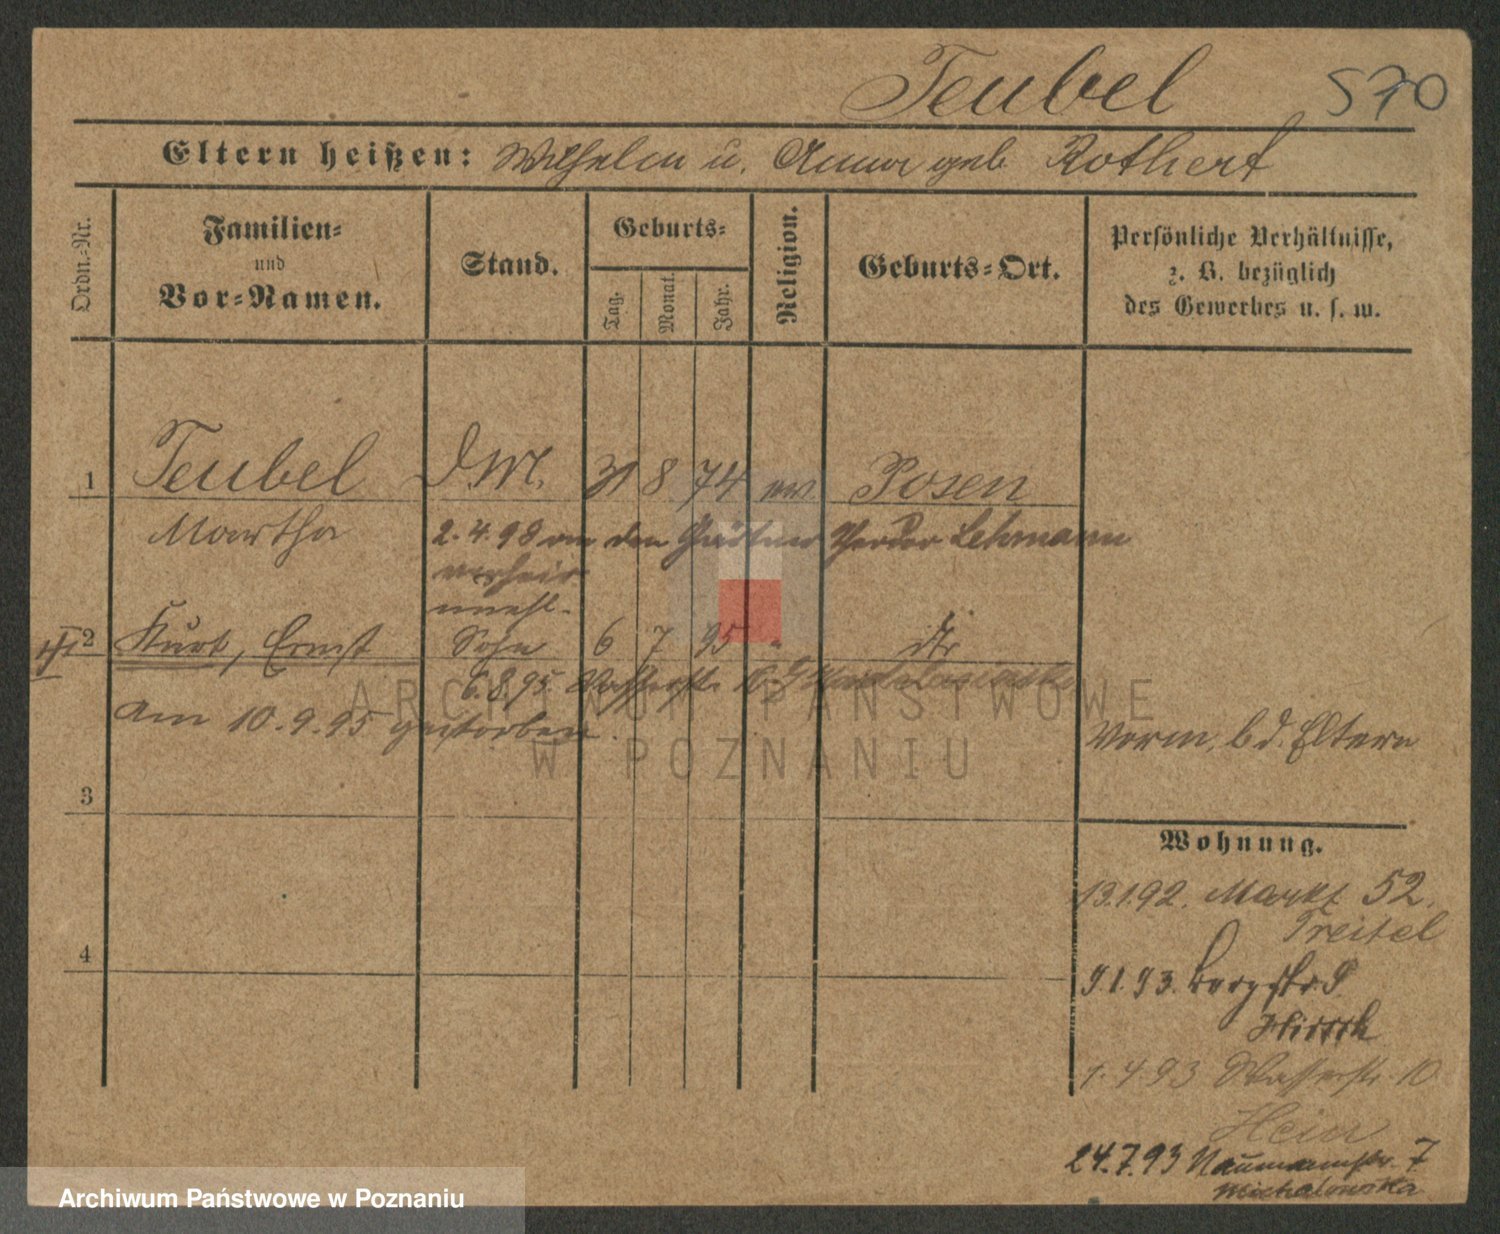 Teubel 570
Eltern heißen: Wilhelm u. Anna geb Rothert
Ordn.-Nr.
Familien-
und
Vor-Namen.
Stand.
Geburts-
Tag.
Monat.
Jahr.
Religion.
Geburts-Ort.
Persönliche Verhältnisse,
z. B. bezüglich
des Gewerbes u. s. w.
1 Teubel D.M. 31 8 74 ev. Posen
Martha
2.4.98 an den Gärtner Theodor Lehmann
verheir
unehl.
2 Kurt, Ernst Sohn 6 7 95 " dto
6.8.95 Wasserstr.
am 10.9.95 gestorben.
Vorm. b d. Eltern
3
Wohnung.
13.1.92. Markt 52.
Treitel
4
9.1.93. Bergstr.
Hirsch
1.4.93 Wasserstr. 10
Heier
24.7.93 Naumannstr. 7
Michalowska
ARCHIWUM PAŃSTWOWE
W POZNANIU
Archiwum Państwowe w Poznaniu